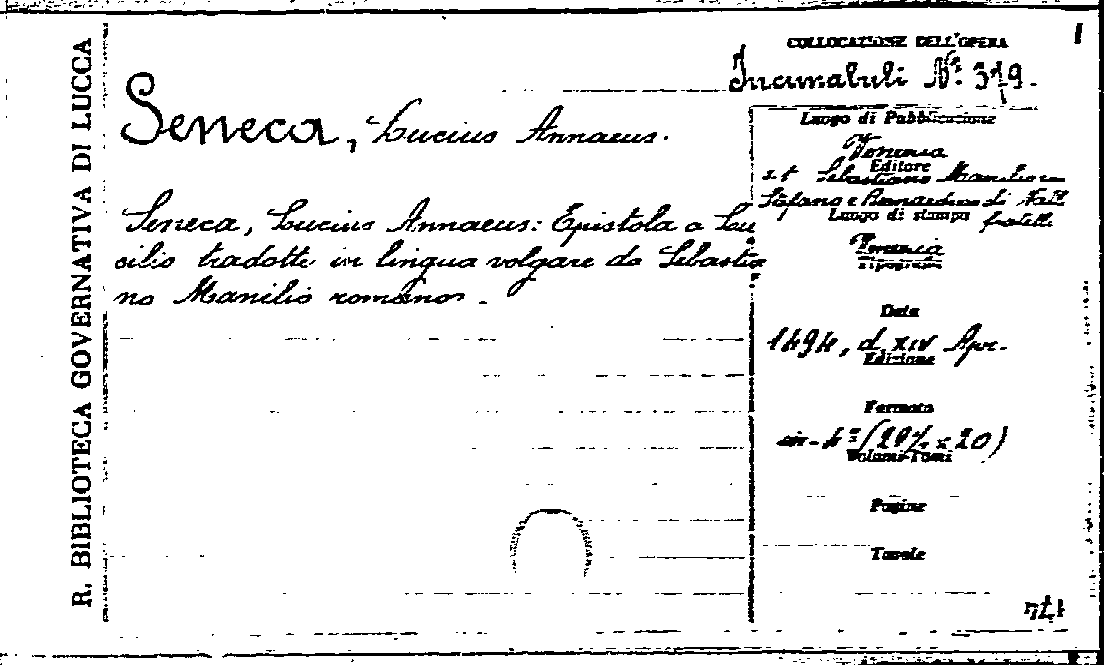 R. BIBLIOTECA GOVERNATIVA DI LUCCA
1
COLLOCAZIONE DELL'OPERA
Incunabuli Nº. 319.
Seneca, Lucius Annaeus.
Seneca, Lucius Annaeus: Epistola a Lu
cilio tradotte in lingua volgare da Sebastia
no Manilio romano.
Luogo di Pubblicazione
Venezia
Editore
Sebastiano Manilio
Stefano e Bernardino di
fratelli
Luogo di stampa
Venezia
Tipografia
Data
1494, d. XIV Apr.
Edizione
Formato
in-4º (29½ x 20)
Volumi-Tomi
Pagine
Tavole